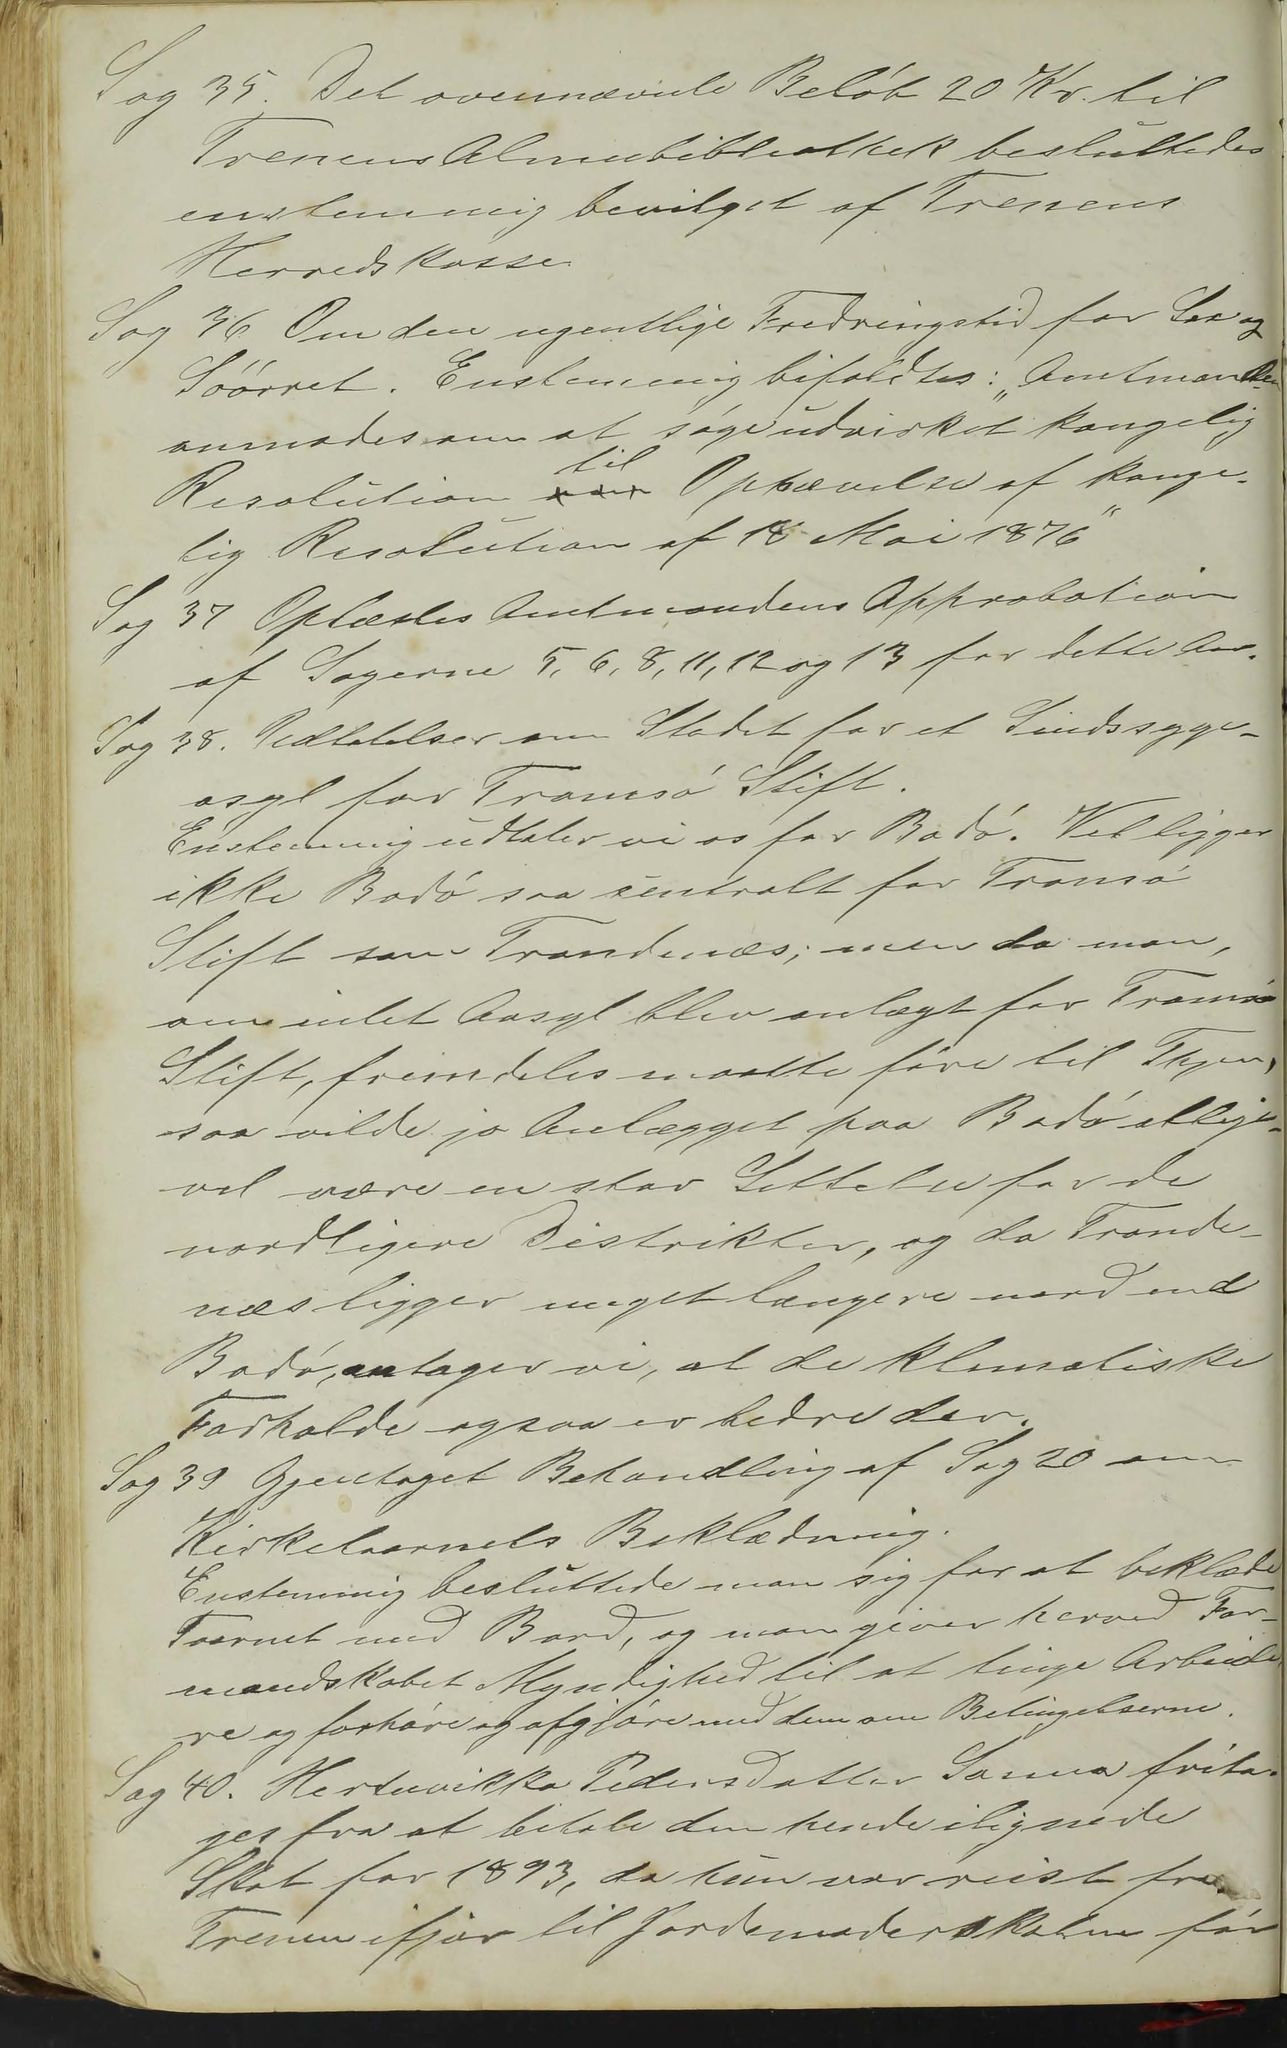 Sag 35. Det ovennævnte Beløb 20 Kr. til
Trenens Almuebibliothek besluttedes
enstemmig bevilget af Trenens
Herredskasse
Sag 36 Om den ugentlige Fredningstid for Lax og
Søørret. Enstemmig bifaldtes: "Amtmanden
anmodes om at søge udvirket kongelig
Resolution til Ophævelse af konge-
lig Resolution af 18 Mai 1876"
Sag 37 Oplæstes Amtmandens Approbation
af Sagerne 5, 6, 8, 11, 12 og 13 for dette Aar.
Sag 38. Udtalelser om Stedet for et Sindssyge-
asyl for Tromsø Stift.
Enstemmig udtaler vi os for Bodø. Vel ligger
ikke Bodø saa sentralt for Tromsø
Stift som Trondenæs; men da man,
om intet Aasyl blev anlagt for Tromsø
Stift, fremdeles maatte føre til Thjem,
saa vilde jo Anlægget paa Bodø allige-
vel være en stor Lettelse for de
nordligere Distrikter, og da Tronde-
næs ligger meget længere nord end
Bodø, antager vi, at de klimatiske
Forholde ogsaa er bedre der.
Sag 39 Gjentaget Behandling af Sag 20 om
Kirketaarnets Beklædning.
Enstemmig besluttede man sig for at beklæde
Taarnet med Bord, og man giver herved For-
mandskabet Myndighed til at tinge Arbeide
re og forhøre og afgjøre med dem om Betingelserne.
Sag 40. Pedersdatter Sanna frita-
ges fra at betale den hende ilignede
Skat for 1893, da hun var reist fra
Trenen ifjor til Jordemoderskolen før